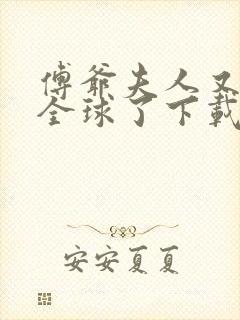 傅爷夫人又
全球了下載
安安夏夏